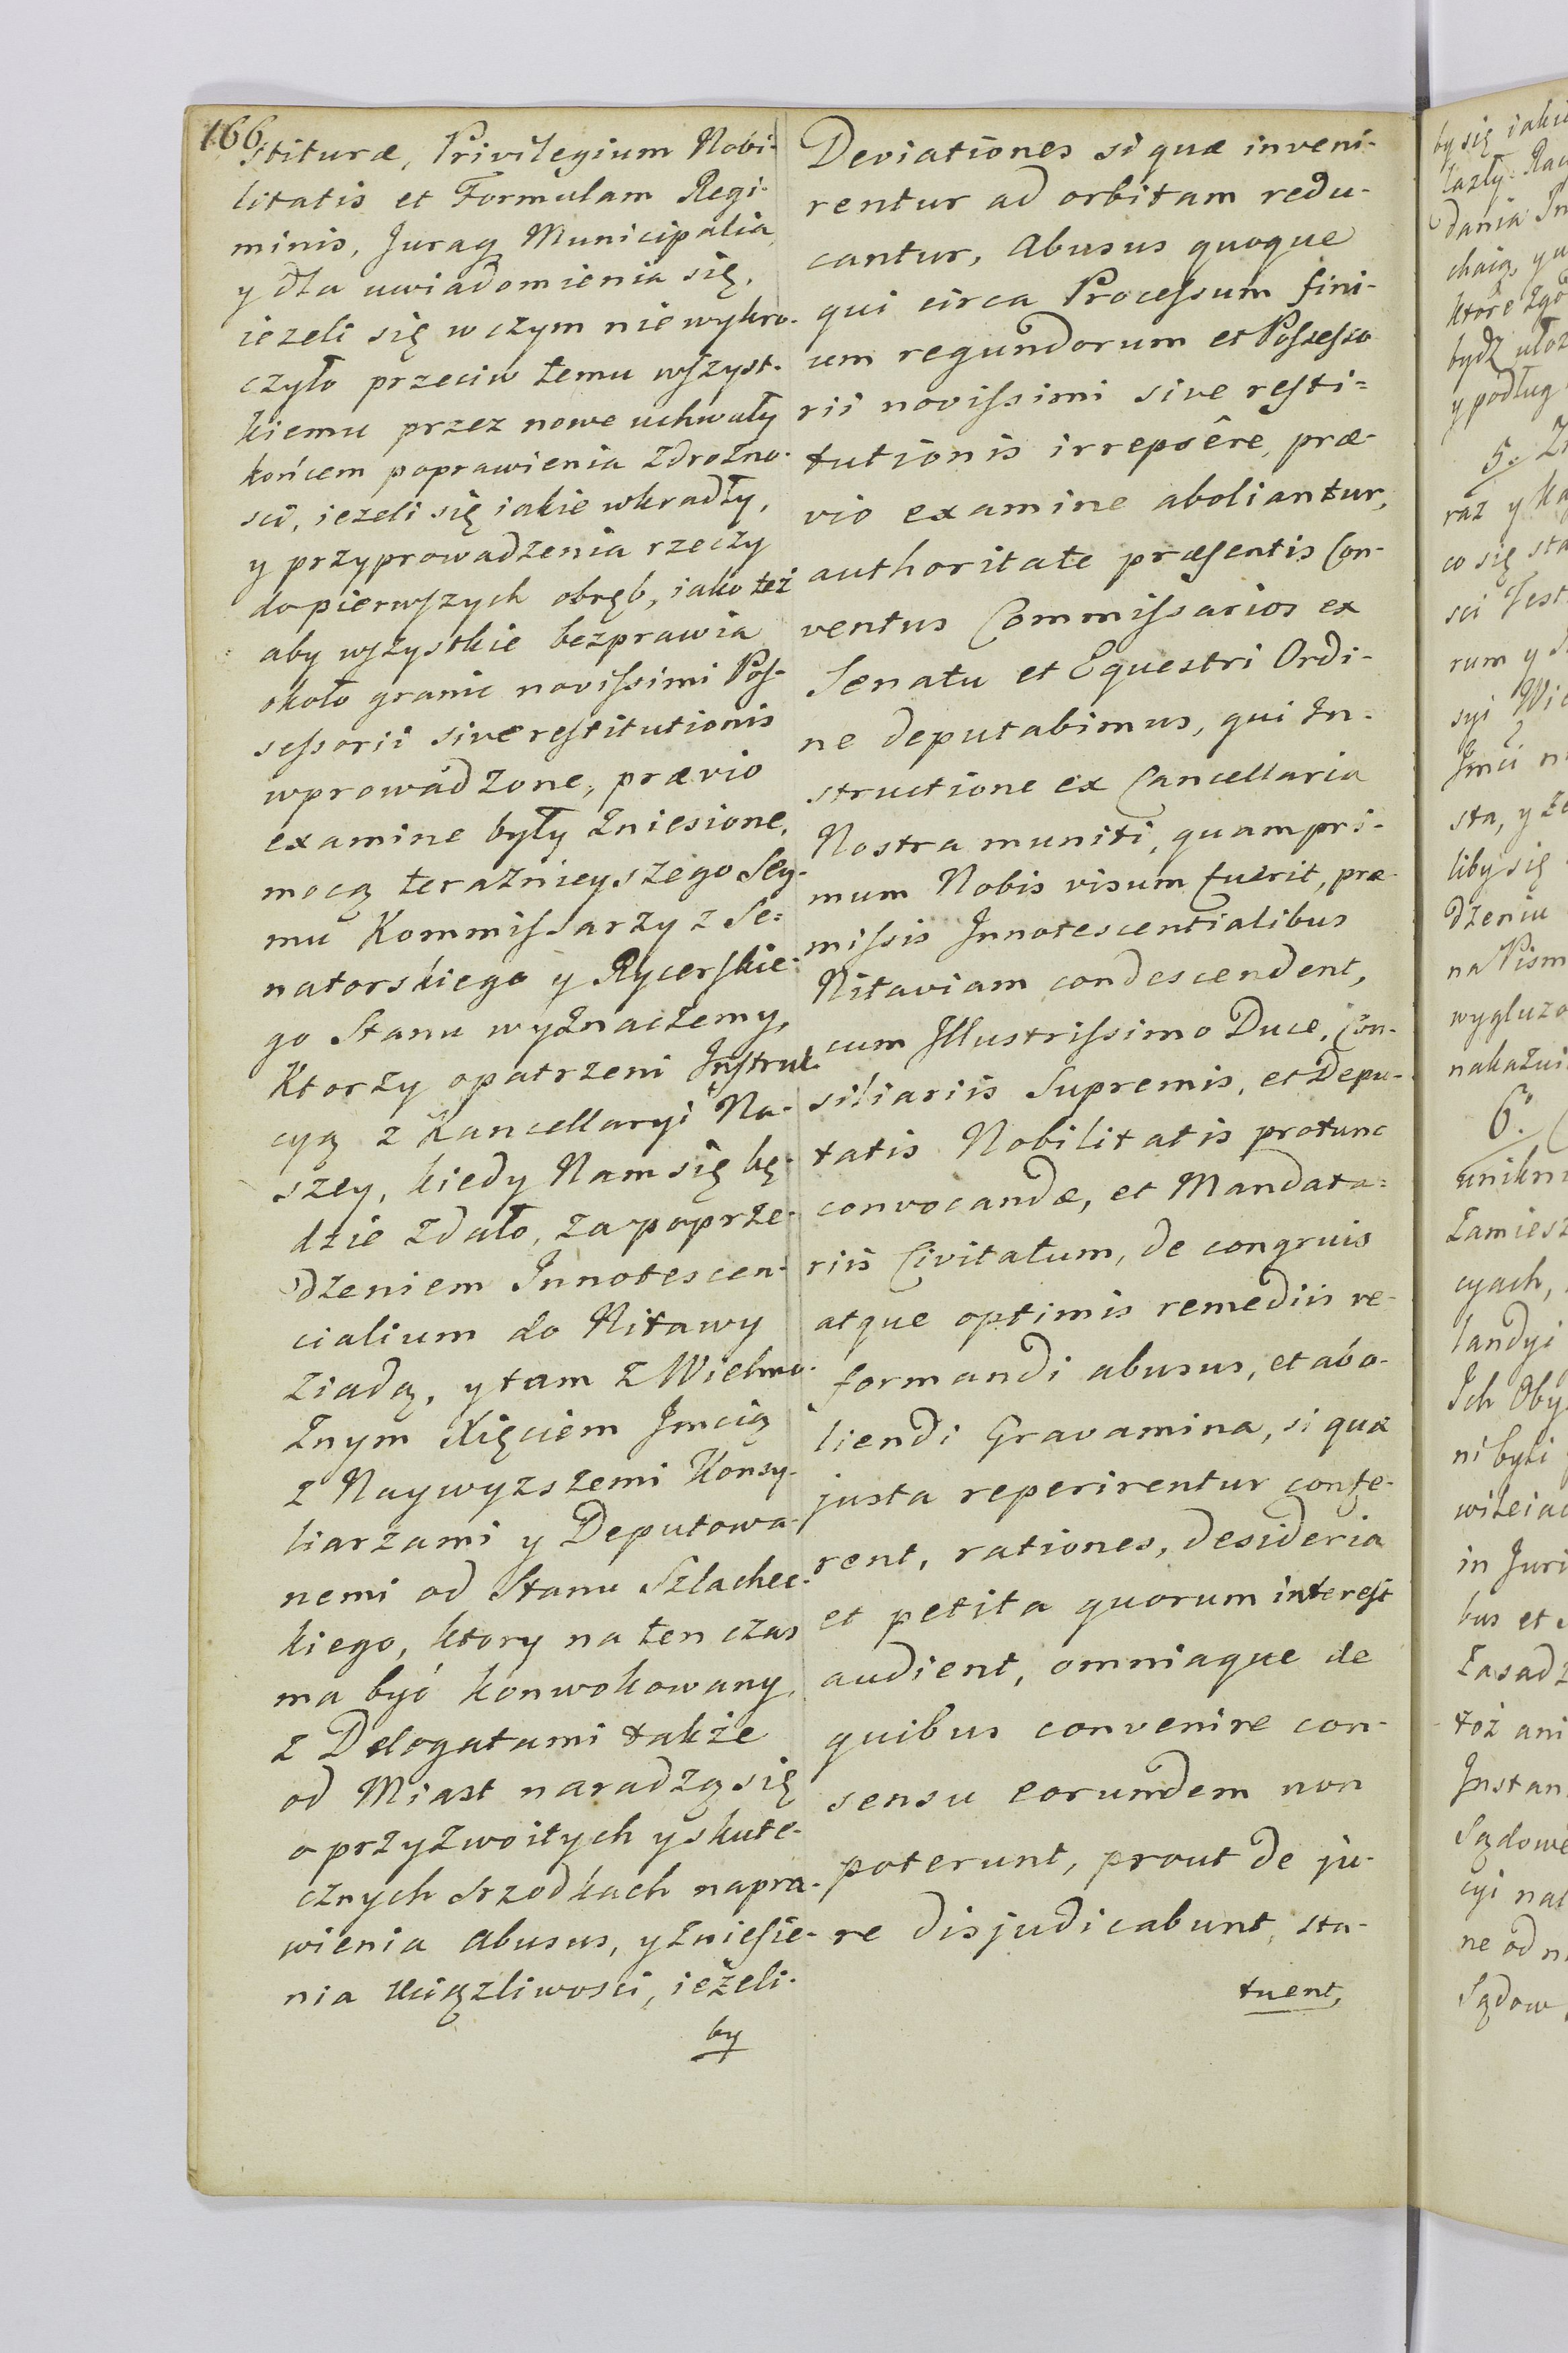 166
stituræ, Privilegium Nobi-
litatis et Formulam Regi-
minis, Juraq Municipalia,
y dla uwiadomienia się,
iezeli się w czym nie wykro-
czyło przeciw temu wszyst-
kiemu przez nowe uchwały
końcem poprawienia zdrożno-
sci, iezeli się iakie wkradły,
y przyprowadzenia rzeczy
do pierwszych obręb, iako też
aby wszystkie bezprawia
około granic novissimi Pos-
sessorii sive restitutionis
wprowadzone, prævio
examine były zniesione,
mocą teraznieyszego Sey-
mu Kommissarzy z Se=
natorskiego y Rycerskie-
go Stanu wyznaczemy,
Ktorzy opatrzeni Instruk-
cyą z Kancellaryi Na-
szey, kiedy Nam się bę-
dzie zdało, za poprze-
dzeniem Innotescen-
cialium do Mitawy
ziadą, y tam z Wielmo-
żnym Xięciem Jmcią
z Naywyzszemi Konsy-
liarzami y Deputowa-
nemi od Stanu Szlachec-
kiego, ktory na ten czas
ma być konwokowany,
z Delogatami także
od Miast naradzą się
o przyzwoitych y skute-
cznych srzodkach napra-
wienia abusus, y zniesie-
nia uciązliwosci, ieżeli-
by
Deviationes si quæ inveni-
rentur ad orbitam redu-
cantur, abusus quoque
qui circa Processum fini-
um regundorum et Possesso
rii novissimi sive resti=
tutionis irrepsêre, præ-
vio examine aboliantur,
authoritate præsentis Con-
ventus Commissarios ex
Senatu et Equestri Ordi-
ne deputabimus, qui In-
structione ex Cancellaria
Nostra muniti, quam pri-
mum Nobis visum fuerit, præ-
missis Innotescentialibus
Mitaviam condescendent,
cum Illustrissimo Duce, Con-
siliariis Supremis, et Depu-
tatis Nobilitatis protunc
convocandæ, et Mandata=
riis Civitatum, de congruis
atque optimis remediis re-
formandi abusus, et abo-
liendi Gravamina, si quæ
justa reperirentur confe-
rent, rationes, desideria
et petita quorum interest
audient, omniaque de
quibus convenire con-
sensu eorundem non
poterunt, prout de ju-
re disjudicabunt, sta-
tuent,
by się iaki
lazły: Rac
dania In
chaią, y w
które zgo
bydź ułoż
y podług
5. Z
raz y ka
co się sta
sci Jest
rum y
syi Wie
Jmci n
sta, y ze
liby się
dzeniu
na Pism
wygluzo
nakażni
6.
unikni
zamiesz
cyach,
landyi
Ich Oby
ni byli
wileiac
in Juri
bus et
zasadz
też ani
Instan
Sądowe
cyi nat
ne od n
Sądow